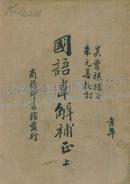 吳曾祺補正
朱元善校訂
國語韋解補正 上
商務印書館發行